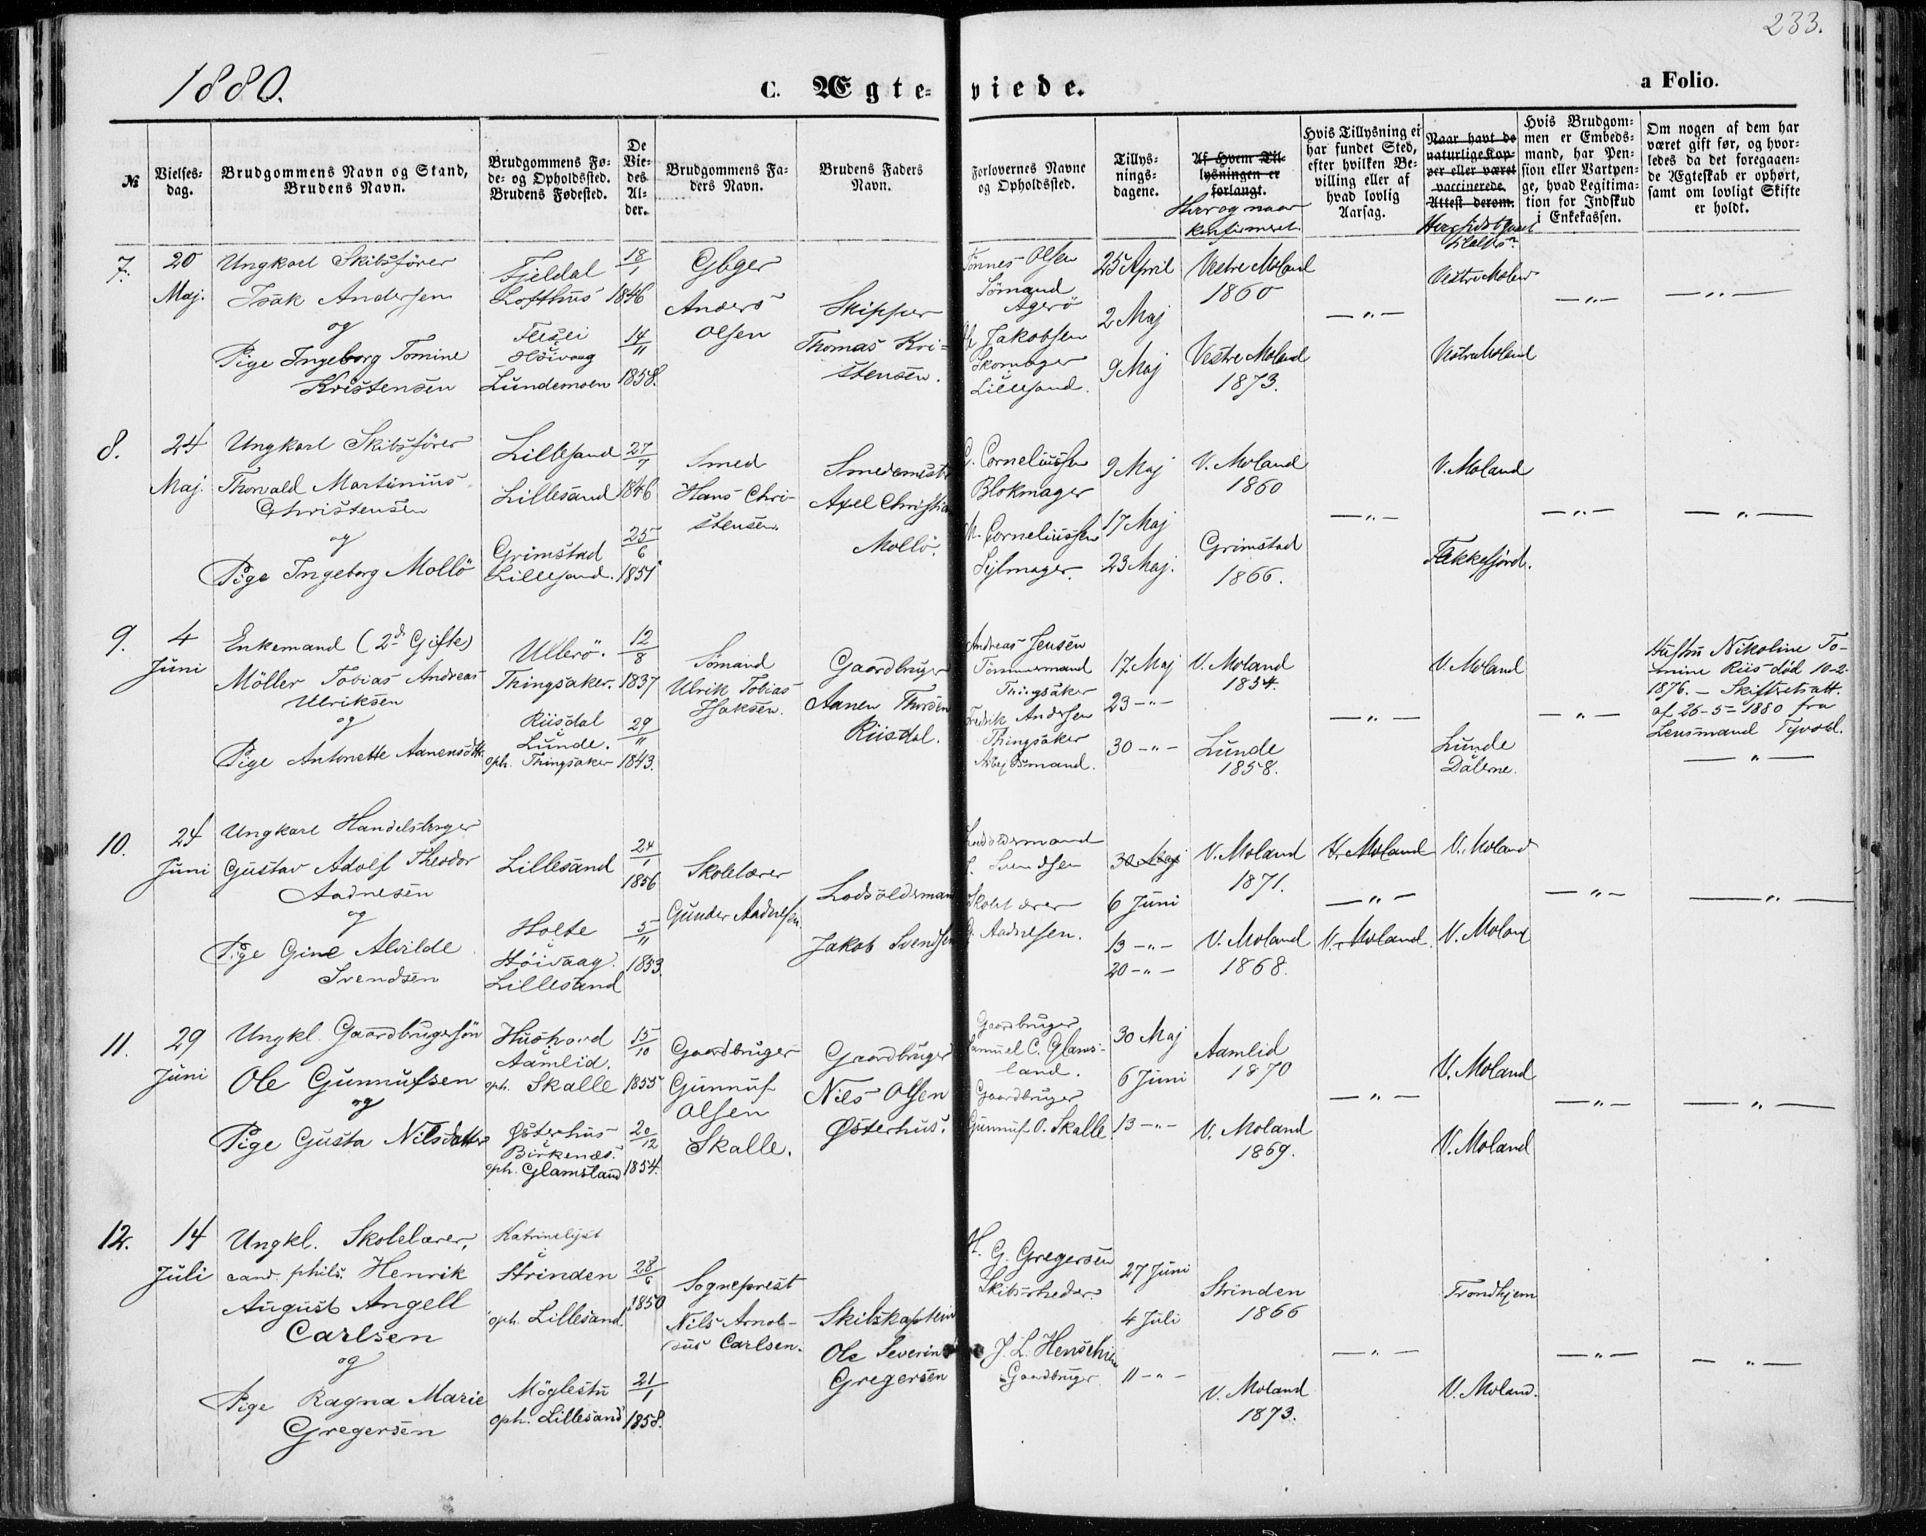 233.
1880.
C. Ægte-
viede.
a Folio.
№
Vielses-
dag.
Brudgommens Navn og Stand,
Brudens Navn.
Brudgommens Fø-
de- og Opholdssted.
Brudens Fødested.
De
Vie-
des
Al-
der.
Brudgommens Fa-
ders Navn.
Brudens Faders
Navn.
Forlovernes Navne
og Opholdssted.
Tillys-
nings-
dagene.
Af Hvem Til-
lysningen er
forlangt.
Hvor og naar
konfirmeret.
Hvis Tillysning ei
har fundet Sted,
efter hvilken Be-
villing eller af
hvad lovlig
Aarsag.
Naar havt de
naturlige Kop-
per eller været
vaccinerede.
Attest derom.
Hvis Brudgom-
men er Embeds-
mand, har Pen-
sion eller Vartpen-
ge, hvad Legitima-
tion for Indskud
i Enkekassen.
Om nogen af dem har
været gift før, og hvor-
ledes da det foregaaen-
de Ægteskab er ophørt,
samt om lovligt Skifte
er holdt.
7.
20
Maj.
Ungkarl Skibsfører
Isak Andersen
og
Pige Ingeborg Tomine
Kristensen
Fjeldal
Lofthus
Høivaag
Lundemoen
18/1
1846
14/11
1858.
Anders
Olsen
Skipper
Thomas Kri-
stensen.
Tønnes Olsen
Sømand
Agerø
Jakobsen
Skomager
Lillesand.
25 April
2 Maj
9 Maj
Vestre Moland
1860
Vestre Moland
1873.
— " —
Vestre Molan
Vestre Moland
— " —
— " —
8.
24
Maj.
Ungkarl Skibsfører
Thorvald Martinius
Christensen
og
Pige Ingeborg Mollö
Lillesand
Lillesand
Grimstad
Lillesand.
27/7
1846
25/6
1851
Smed
Hans Chri-
stensen.
Smedemest
Axel Christian
Mollö.
Corneliussen
Blokmager
M. Corneliussen
Sejlmager.
9 Maj
17 Maj
23 Maj.
V. Moland
1860
Grimstad
1866.
— " —
V. Moland
Fækkefjord.
— " —
— " —
9.
4
Juni
Enkemand (2d Gifte)
Möller Tobias Andreas
Ulriksen
og
Pige Antonette Aanensdtt
Ulerö.
Tingsaker.
Riisdal
Lunde.
oph. Tingsaker
12/8
1837
29/11
1843.
Sømand
Ulrik Tobias
Isaksen.
Gaardbruger
Aanen Thorsen
Riisdal.
Andreas Jensen
Tømmermand
Thingsaker
Fredrik Andersen
Thingsaker
Arbejdsmand.
17 Maj
23 — " —
30 — " —
V. Moland
1854.
Lunde
1858.
— " —
V. Moland
Lunde
Dalerne.
— " —
Hustru Nikoline To-
mine Riis död 10-2-
1876. — Skifteretsatt.
af 26-5-1880 fra
Lensmand Tyvold.
— " —
10.
24
Juni
Ungkarl Handelsborger
Gustav Adolf Theodor
Aadnesen
og
Pige Gine Alvilde
Svendsen
Lillesand
Holte
Höivaag.
Lillesand
24/1
1856
5/11
1853.
Skolelærer
Gunder Aadnesen
Lodsoldermand
Jakob Svendsen
Lodsoldermand
Svendsen
Skolelærer
G. Aadnesen.
30 Maj
6 Juni
13 — " —
20 — " —
V. Moland
1871.
V. Moland
1868.
V. Moland
— " —
V. Moland.
V. Moland
V. Moland
— " —
— " —
11.
29
Juni
Ungkl. Gaardbrugersön
Ole Gunnufsen
og
Pige Gusta Nilsdatter
Aamlid.
oph. Skalle
Østerhus
Birkenæs.
oph. Glamsland
15/10
1855
20/12
1854.
Gaardbruger
Gunnuf
Olsen
Skalle.
Gaardbruger
Nils Olsen
Østerhus.
Gaardbruger
Samuel C. Glams-
land.
Gaardbruger
Gunnuf O. Skalle
30 Maj
6 Juni
13 — " —
Aamlid
1870
V. Moland
1869.
— " —
V. Moland
V. Moland
— " —
— " —
12.
14
Juli
Ungkl. Skolelærer,
cand. phils. Henrik
August Angell
Carlsen
og
Pige Ragna Marie
Gregersen
Katrinelyst
Strinden
oph. Lillesand.
Möglestu
oph. Lillesand
28/6
1850
21/1
1858.
Sogneprest
Nils Arnol-
dus Carlsen.
Skibskaptein
Ole Severin
Gregersen
G. Gregersen
Skibsrheder.
J. L. Henschien
Gaardbruger.
27 Juni
4 Juli
11 — " —
Strinden
1866
V. Moland
1873.
— " —
Trondhjem
V. Moland.
— " —
— " —